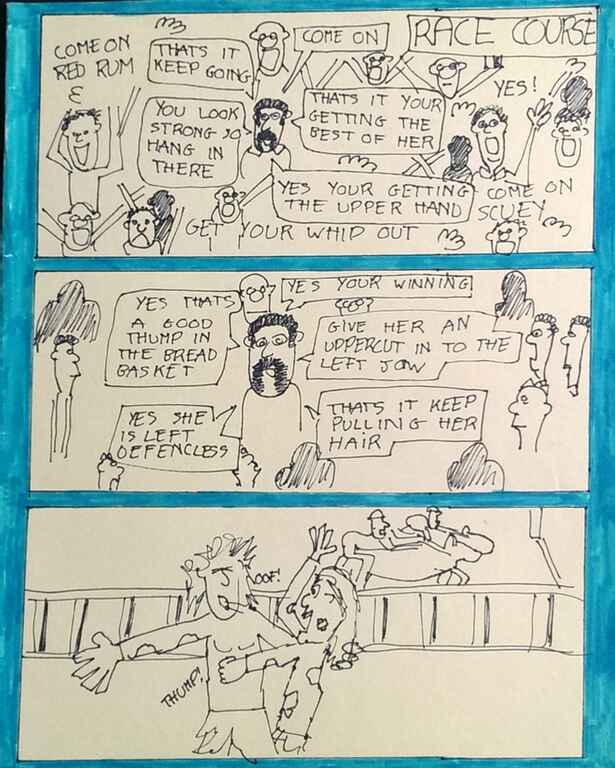 RACE COURSE
COME ON
RED RUM
THATS IT
KEEP GOING
COME ON
YES!
YOU LOOK
STRONG SO
HANG IN
THERE
THATS IT YOUR
GETTING THE
BEST OF HER
YES YOUR GETTING
THE UPPER HAND
COME ON
SCUEY
GET YOUR WHIP OUT
YES YOUR WINNING
YES THATS
A GOOD
THUMP IN
THE BREAD
BASKET
GIVE HER AN
UPPERCUT IN TO THE
LEFT JOW
YES SHE
IS LEFT
DEFENCLESS
THATS IT KEEP
PULLING HER
HAIR
OOF!
THUMP!